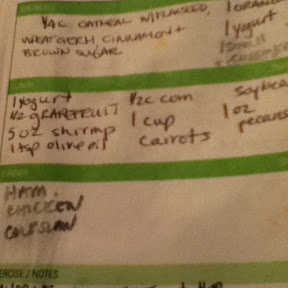 1/4c OATMEAL W/FLAXSEED,
WHEATGERM CINNAMON +
BROWN SUGAR
1 yogurt
1 yogurt
1/2 GRAPEFRUIT
5 oz shrimp
1 tsp olive oil
1/2c corn
1 cup
carrots
soybea
1 oz
pecans
HAM.
CHICKEN
COLESLAW
ERCISE / NOTES